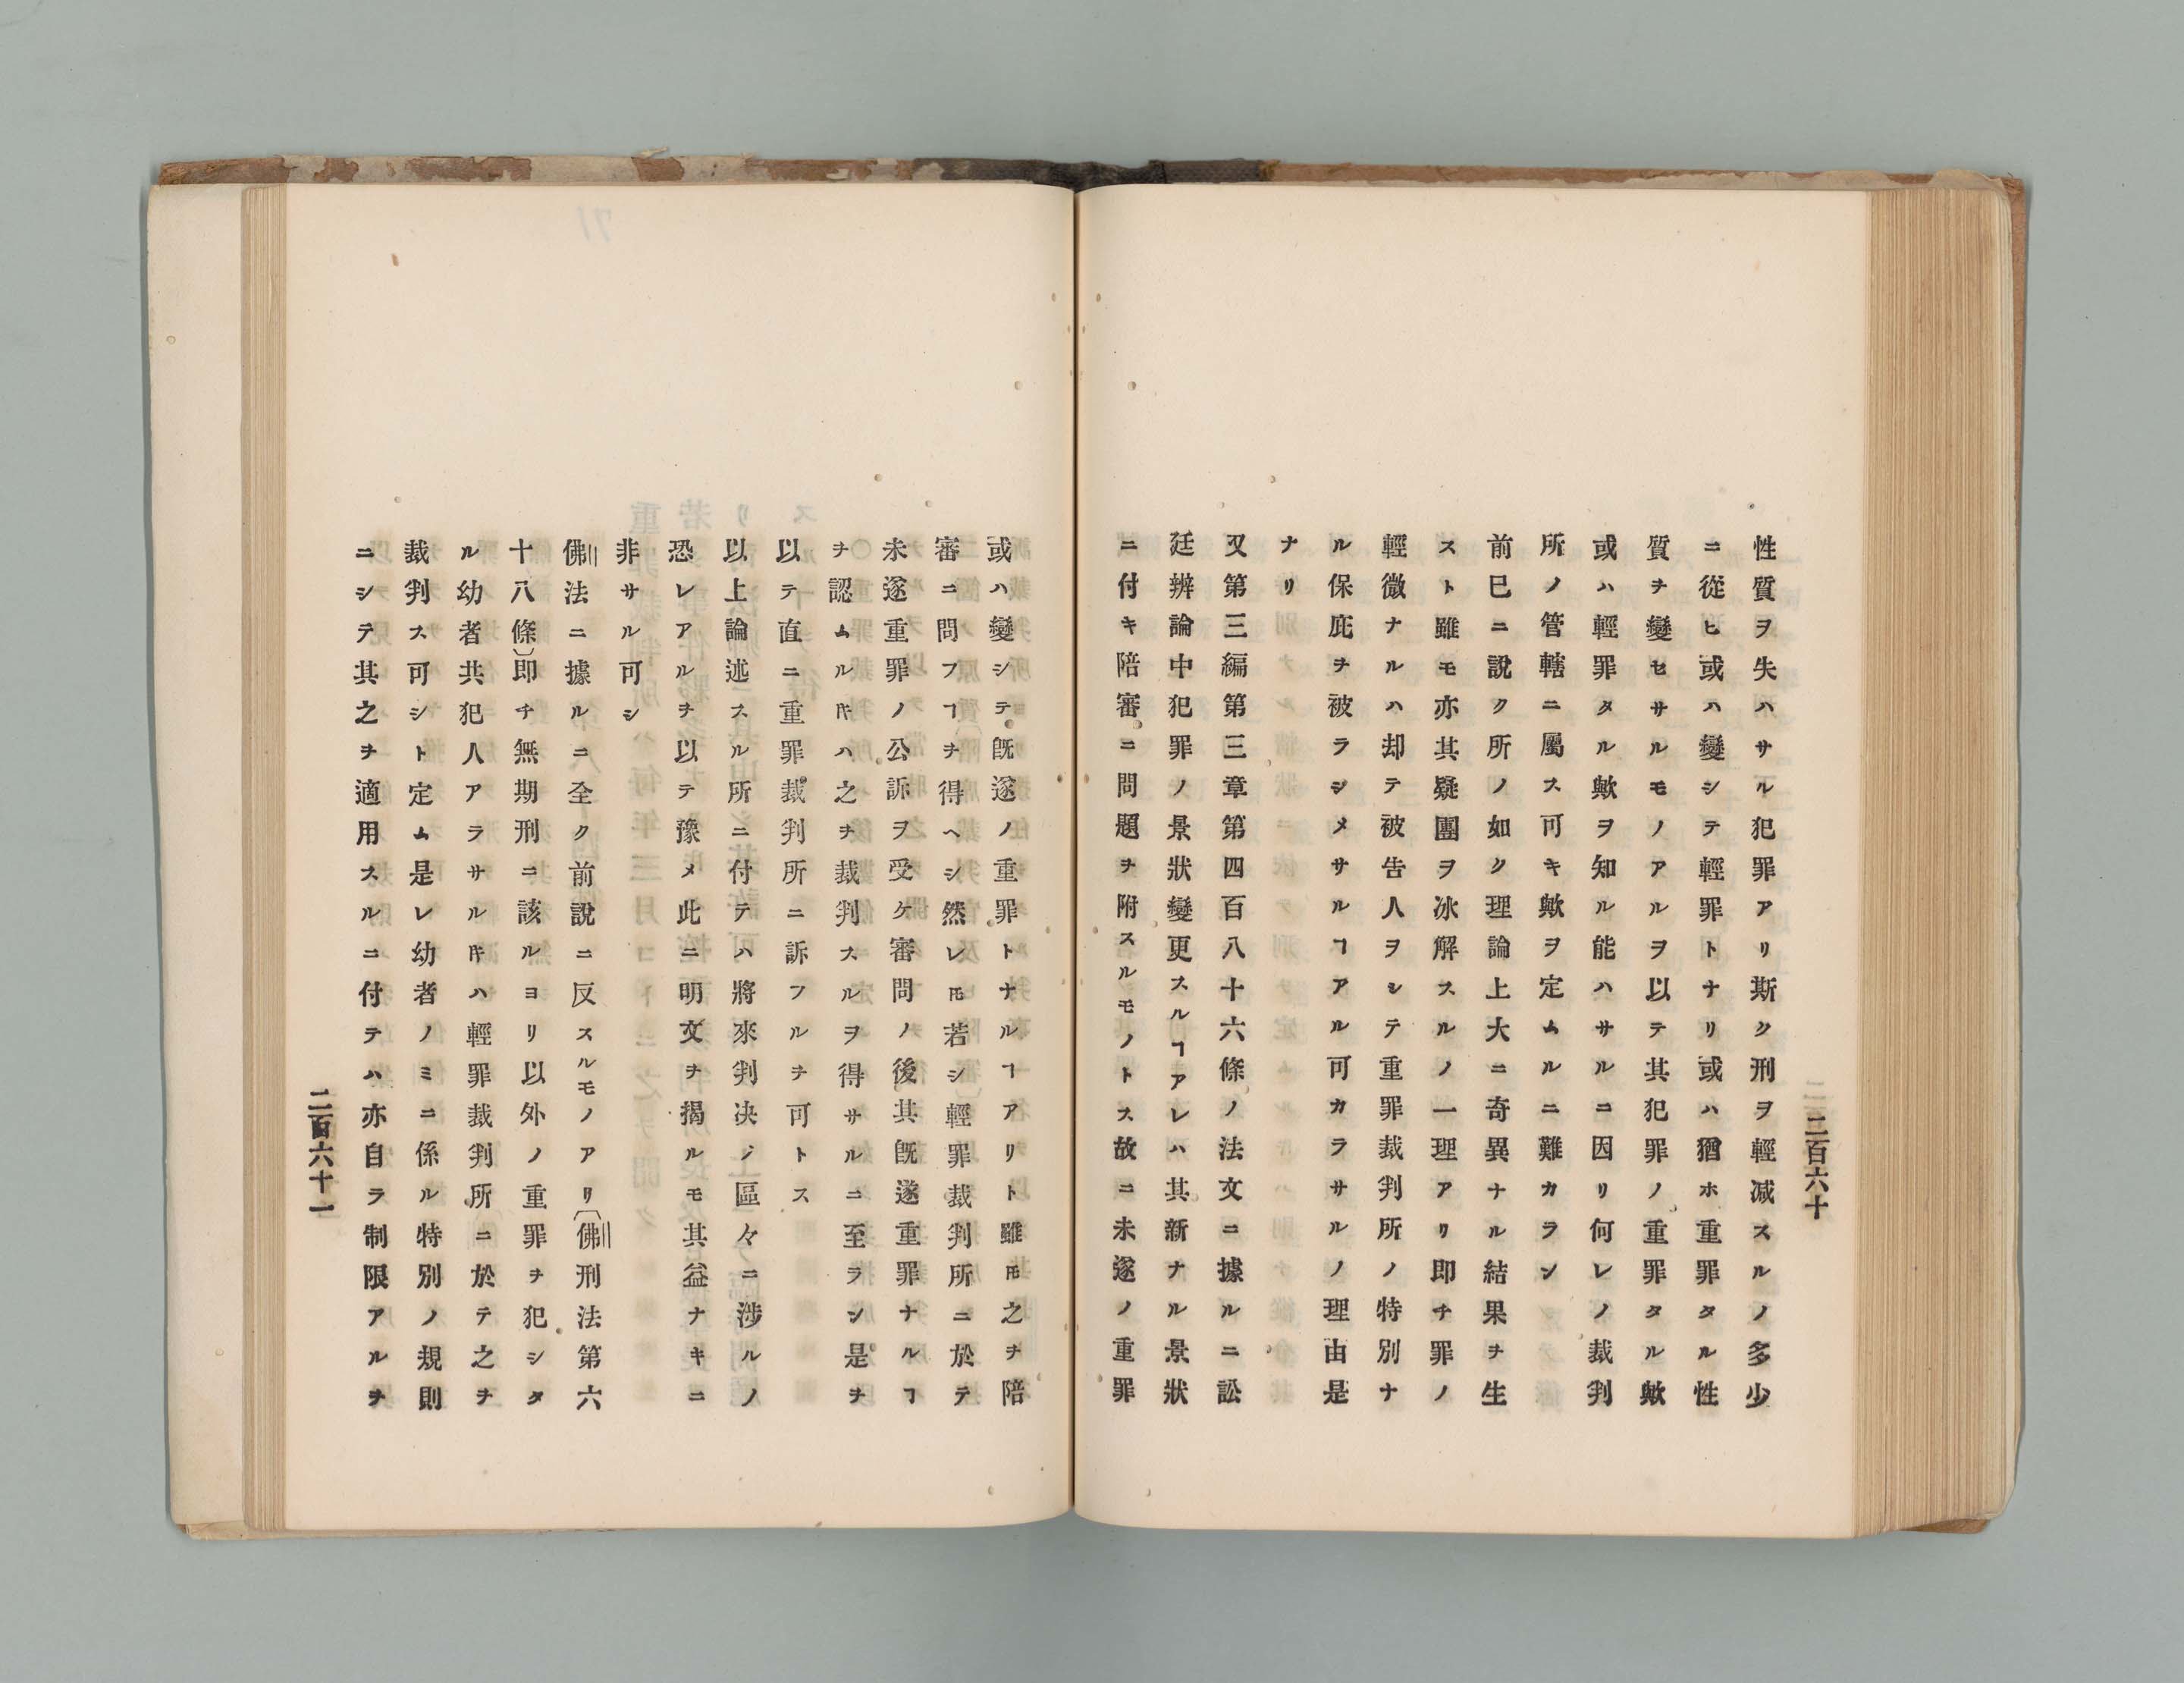 二百六十
性質ヲ失ハサル犯罪アリ斯ク刑ヲ輕减スルノ多少
ニ從ヒ或ハ變シテ輕罪トナリ或ハ猶ホ重罪タル性
質ヲ變セサルモノアルヲ以テ其犯罪ノ重罪タル歟
或ハ輕罪タル歟ヲ知ル能ハサルニ因リ何レノ裁判
所ノ管轄ニ屬ス可キ歟ヲ定ムルニ難カラン
前巳ニ說ク所ノ如ク理論上大ニ奇異ナル結果ヲ生
スト雖モ亦其疑團ヲ冰解スルノ一理アリ即チ罪ノ
輕微ナルハ却テ被告人ヲシテ重罪裁判所ノ特別ナ
ル保庇ヲ被ラシメサルヿアル可カラサルノ理由是
ナリ
又第三編第三章第四百八十六條ノ法文ニ據ルニ訟
廷辨論中犯罪ノ景狀變更スルヿアレハ其新ナル景狀
ニ付キ陪審ニ問題ヲ附スルモノトス故ニ未遂ノ重罪
或ハ變シテ旣遂ノ重罪トナルヿアリト雖𪜈之ヲ陪
審ニ問フヿヲ得ヘシ然レ𪜈若シ輕罪裁判所ニ於テ
未遂重罪ノ公訴ヲ受ケ審問ノ後其旣遂重罪ナルヿ
ヲ認ムル𪜈ハ之ヲ裁判スルヲ得サルニ至ラン是ヲ
以テ直ニ重罪裁判所ニ訴フルヲ可トス
以上論述スル所ニ付テハ將來判决ノ區々ニ涉ルノ
恐レアルヲ以テ豫メ此ニ明文ヲ揭ルモ其益ナキニ
非サル可シ
佛法ニ據ルニ全ク前說ニ反スルモノアリ(佛刑法第六
十八條)即チ無期刑ニ該ルヨリ以外ノ重罪ヲ犯シタ
ル幼者共犯人アラサル𪜈ハ輕罪裁判所ニ於テ之ヲ
裁判ス可シト定ム是レ幼者ノミニ係ル特別ノ規則
ニシテ其之ヲ適用スルニ付テハ亦自ラ制限アルヲ
二百六十一